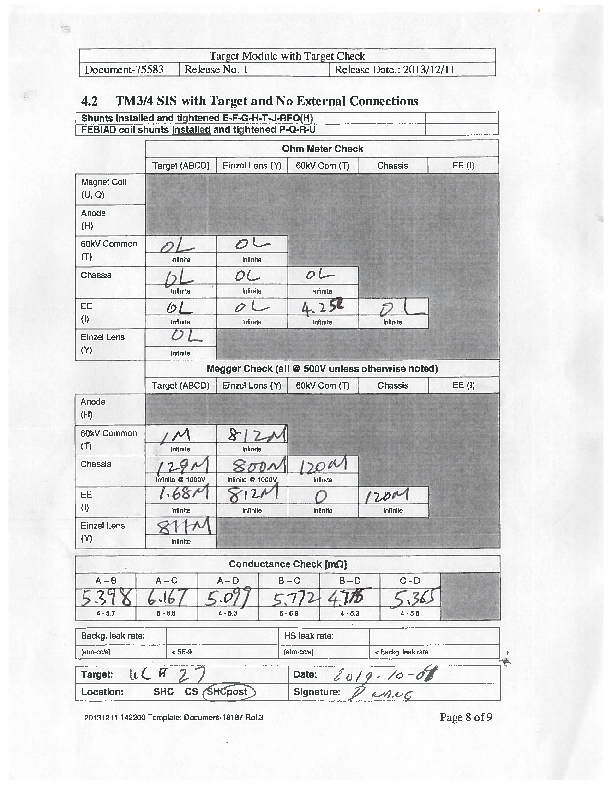 Target Module with Target Check
Document-75583 Release No. 1 Release Date.: 2013/12/11
4.2 TM3/4 SIS with Target and No External Connections
Shunts installed and tightened E-F-G-H-T-J-RFQ(H)
FEBIAD coil shunts installed and tightened P-Q-R-U
Ohm Meter Check
Target (ABCD) Einzel Lens (Y) 60kV Com (T) Chassis EE (I)
Magnet Coil
(U, Q)
Anode
(H)
60kV Common OL OL
(T) Infinite Infinite
Chassis OL OL OL
Infinite Infinite Infinite
EE OL OL OL
(I) Infinite Infinite Infinite Infinite
Einzel Lens OL
(Y) Infinite
Megger Check (all @ 500V unless otherwise noted)
Target (ABCD) Einzel Lens (Y) 60kV Com (T) Chassis EE (I)
Anode
(H)
60kV Common 1M 812M
(T) Infinite Infinite
Chassis 129M 800M 120M
Infinite @ 1000V Infinite @ 1000V Infinite
EE 1.68M 812M 0 120M
(I) Infinite Infinite Infinite Infinite
Einzel Lens 811M
(Y) Infinite
Conductance Check [mΩ]
A – B A – C A – D B – C B – D C - D
5.398 6.167 5.099 5.772 5.365
Backg. leak rate: HS leak rate:
[atm-cc/s] < 5E-9 [atm-cc/s] < Backg. leak rate
Target: UC# 27 Date:
Location: SHC CS SHCpost Signature:
Page 8 of 9